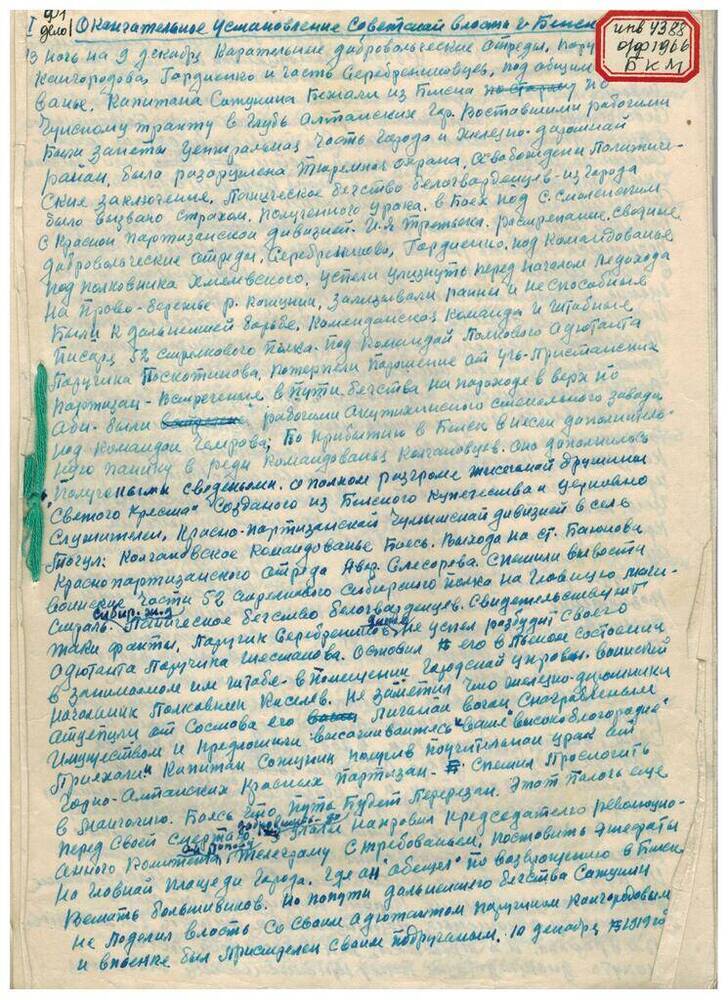 ф1
дело1
инв 4388
оф 1966
БКМ
I Окончательное установление Советской власти в Бийске
В ночь на 9 декабр Карательные добровольческие отреды,
Кайгородова, Гордиенко и часть Серебренниковцев, под общим
ванье, Капитана Сатунина Бежали из Бийска по
Чуйскому тракту в глубь Алтайских Гор. Восставшими рабочими
Были заметы центральная часть города и железно-дорожной
район, была разаружена Тюремная охрана, освобождени Политиче-
ские заключение, Паническое бегство белогвардейцев из города
было вызвано страхом, полученного урака, в боех под с. Смоленским
с Красной партизанской дивизией. И.Я Третьяка. растрепание, сводние
добровольческие отреды, Серебреникова, Гордиенко, под Командованье
под полковника Хмелевского, успели улизнуть перед началом ледохода
на Право-бережье р. Катунии, зализывали ранни и не способные
Были к дальнейшей борьбе, Комендантская Команда и штабные
писаря 52 стрелкового полка под Командой Полкового Адютанта
Паручика Поскотинова, потерпели паражение от усть-Пристанских
Партизан - встречения в пути бегства на пароходе в верх по
Аби - были рабочими
под Командой Чемрова; По прибытию в Бийск внесли дополнитель-
ную панику в реди Командованья Колчаковцев. Оно дополнилось
Полученыим сведеньями о полном разгроме дружины
Святого Креста" созданого из Бийского Купечества и церковно
служителей, Красно-партизанской Чумышской дивизией в селе
Тогул: Колчаковское Командованье Боясь. Выхода на ст.
Краснопартизанского отреда Слесорева. Спешили вывости
воинские части 52 стрелкового Сибирского полка на Главную маги-
страль. Сибир. ж.д Паническое бегство белогвардейцев. Свидетельствуют
таки факты, Паручик Серебреников не успел разбудит своего
Адютанта Паручика Шестакова. Оставил его в пьяном состоянии
в занимаемом им штабе - в помещении городской управы. воинский
Начальник Полковник Киселев. Не заметил что железно-дорожники
отцепули от Состова его вагон с награбленым
Имуществом и предложили "высаживайтесь" ваше "высокоблагородие"
Приехали" Капитан Сатунин получив поучительнои урак от
Горно-Алтайских Красных Партизан - Спешил Проскочить
в Манголию. Боясь что путь будет перерезан. Этот палачь еще
перед своей смертью направил председателю революцио-
анного Комитета Телеграму с требованьем, поставить эшефоты
на Главной площеди города, где ан "обещел" по возврощению в Бийск
Вешать большивиков. но попути дальнейшего бегства Сатунин
не поделил власть со своим адютантом паручиком Кайгородовым
и был пристрелен своим подручным. 10 декабря 1919 го